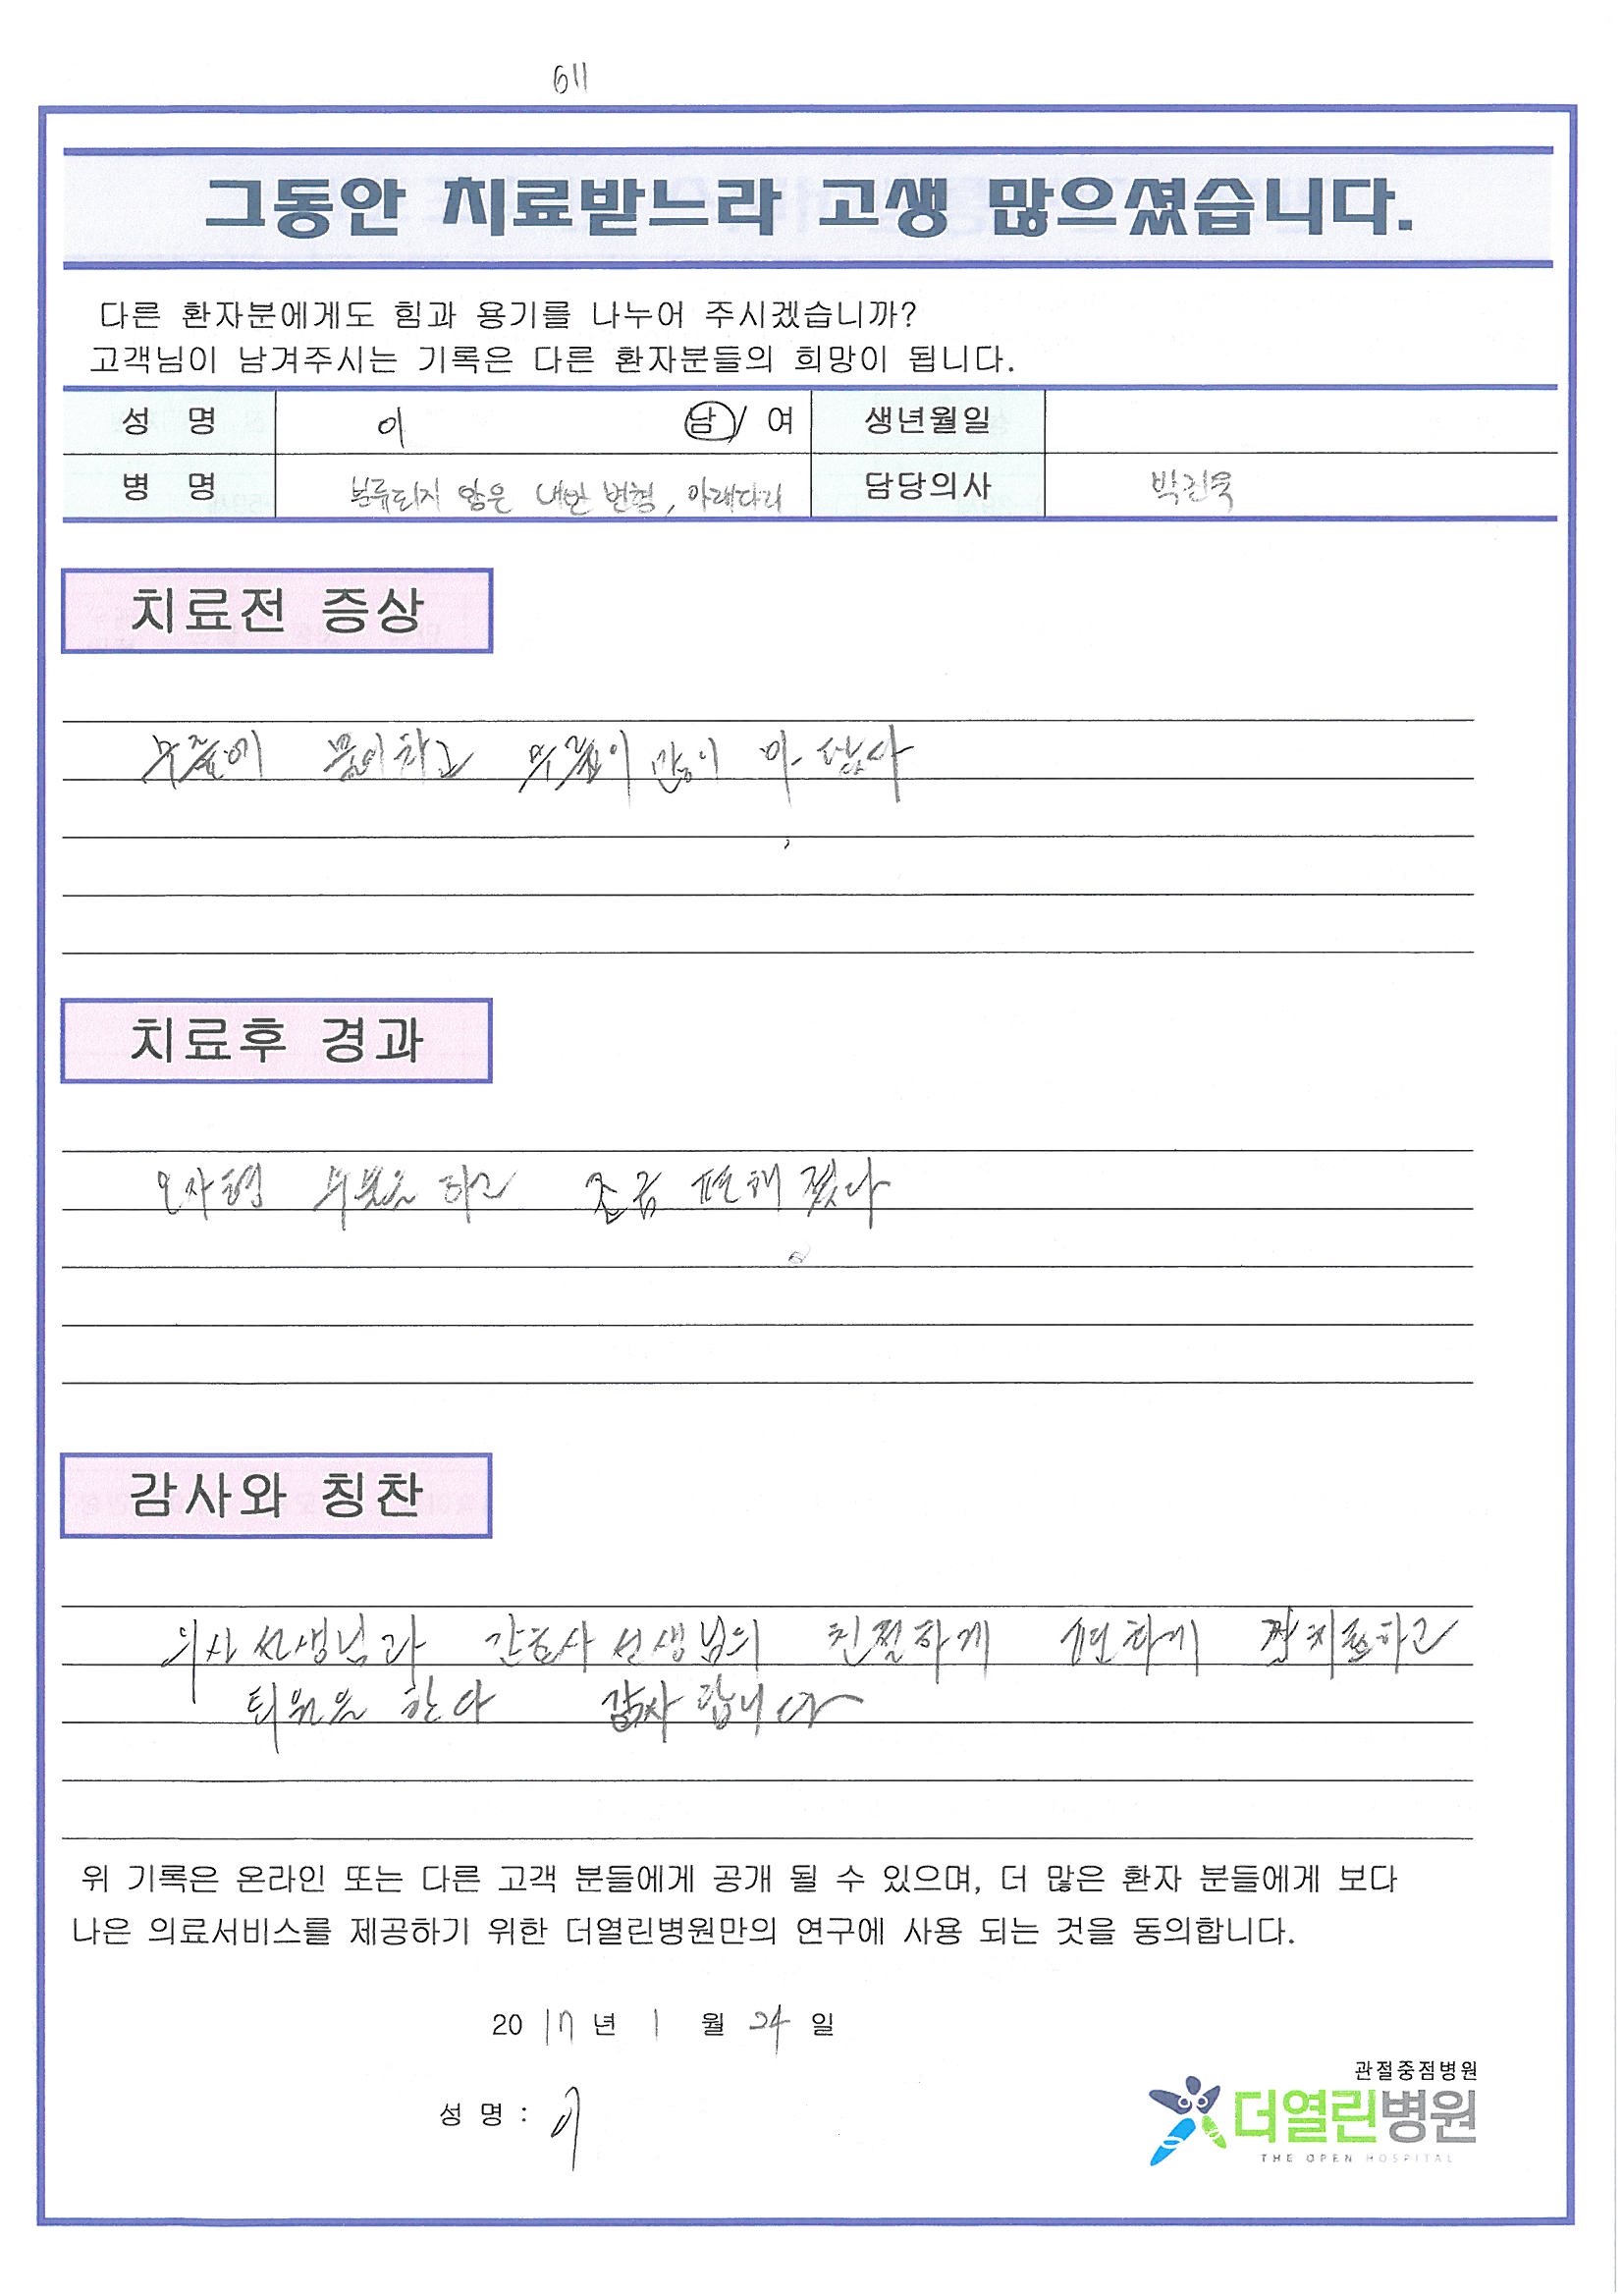 611
그동안 치료받느라 고생 많으셨습니다.
다른 환자분에게도 힘과 용기를 나누어 주시겠습니까?
고객님이 남겨주시는 기록은 다른 환자분들의 희망이 됩니다.
성 명 이 남 / 여 생년월일
병 명 분류되지 않은 내반 변형, 아래다리 담당의사 박진욱
치료전 증상
무릎에 물이차고 무릎이 많이 아팠다
치료후 경과
오자형 수술을 하고 조금 편해 졌다
감사와 칭찬
의사선생님과 간호사 선생님의 친절하게 편하게 잘치료하고
퇴원을 한다 감사 합니다
위 기록은 온라인 또는 다른 고객 분들에게 공개 될 수 있으며, 더 많은 환자 분들에게 보다
나은 의료서비스를 제공하기 위한 더열린병원만의 연구에 사용 되는 것을 동의합니다.
20 17 년 1 월 24 일
성 명 : 이
관절중점병원
더열린병원
THE OPEN HOSPITAL